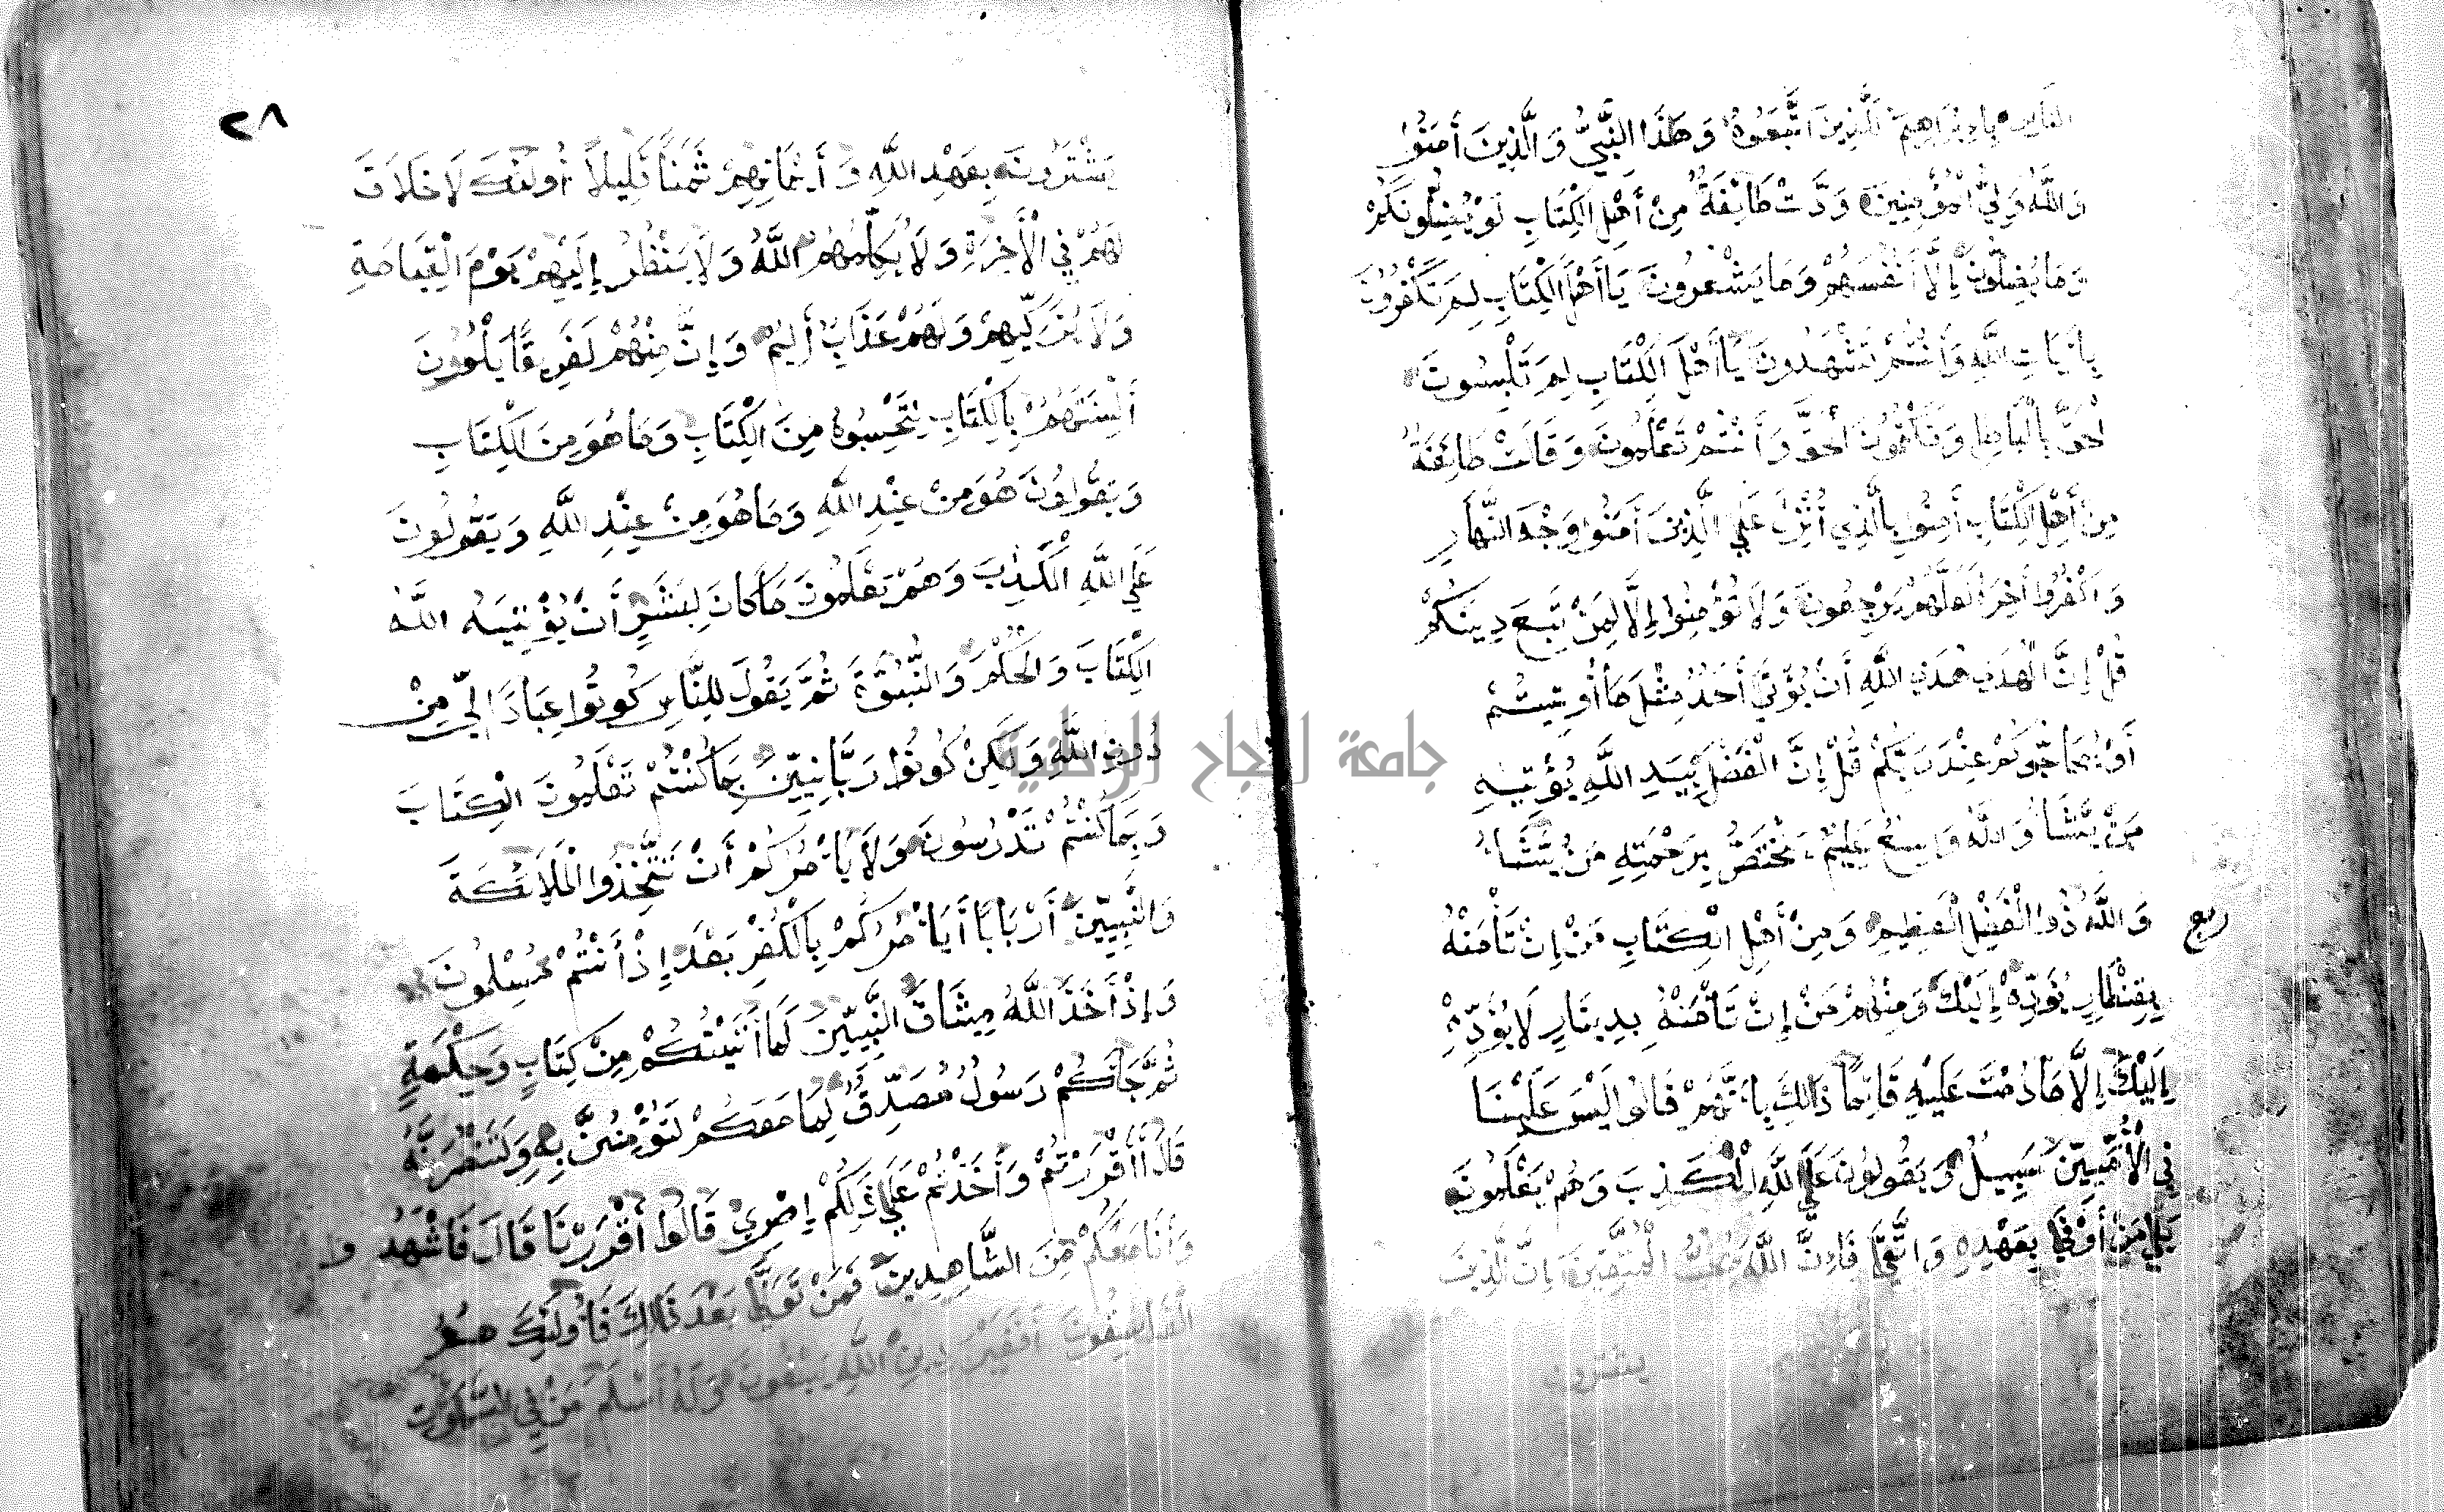 الناس بإبراهيم للذين اتبعوه وهذا النبي والذين أمنوا
والله ولي المؤمنين ودت طائفة من أهل الكتاب لو يضلونكم
وما يضلون إلا أنفسهم وما يشعرون يا أهل الكتاب لم تكفرون
بآيات الله وأنتم تشهدون يا أهل الكتاب لم تلبسون
الحق بالباطل وتكتمون الحق وأنتم تعلمون وقالت طائفة
من أهل الكتاب أمنوا بالذي أنزل علي الذين أمنوا وجه النهار
واكفروا أخره لعلهم يرجعون ولا تؤمنوا إلا لمن تبع دينكم
قل إن الهدي هدي الله أن يؤتي أحد مثل ما أوتيتم
أو يحاجوكم عند ربكم قل إن الفضل بيد الله يؤتيه
من يشاء والله واسع عليم يختص برحمته من يشاء
ربع
والله ذوا الفضل العظيم ومن أهل الكتاب من إن تأمنه
بقنطار يؤده إليك ومنهم من إن تأمنه بدينار لا يؤده
إليك إلا ما دمت عليه قائما ذالك بأنهم قالوا ليس علينا
في الأميين سبيل ويقولون علي الله الكذب وهم يعلمون
بلي من أوفي بعهده واتقي فإن الله يحب المتقين إن الذين
يشترون
٢٨
يشترون بعهد الله وأيمانهم ثمنا قليلا أولئك لا خلاق
لهم في الأخرة ولا يكلمهم الله ولا ينظر إليهم يوم القيامة
ولا يزكيهم ولهم عذاب أليم وإن منهم لفريقا يلوون
ألسنتهم بالكتاب لتحسبوه من الكتاب وما هو من الكتاب
ويقولون هو من عند الله وما هو من عند الله ويقولون
علي الله الكذب وهم يعلمون ما كان لبشر أن يؤتيه الله
الكتاب والحكم والنبوة ثم يقول للناس كونوا عبادا لي من
دون الله ولكن كونوا ربانيين بما كنتم تعلمون الكتاب
وبما كنتم تدرسون ولا يأمركم أن تتخذوا الملائكة
والنبيين أربابا أيأمركم بالكفر بعد إذ أنتم مسلمون
وإذ أخذ الله ميثاق النبيين لما أتيتكم من كتاب وحكمة
ثم جاكم رسول مصدق لما معكم لتؤمنن به ولتنصرنه
قال أأقررتم وأخذتم علي ذلكم إصري قالوا أقررنا قال فاشهدوا
وأنا معكم من الشاهدين فمن تولي بعد ذالك فأولئك هم
الفاسقون أفغير دين الله يبغون وله أسلم من في السموات
جامعة النجاح الوطنية